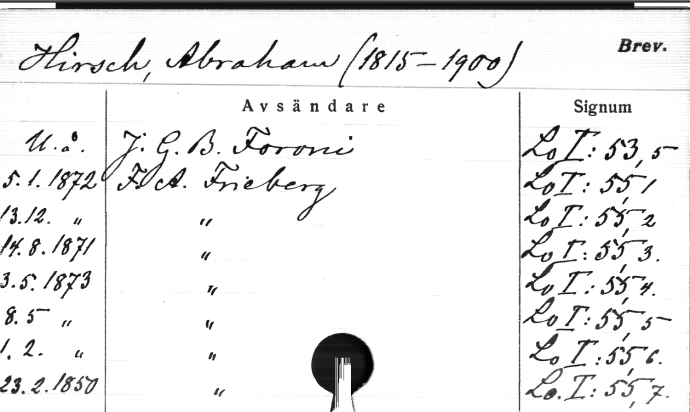 Hirsch, Abraham (1815-1900) Brev.
Avsändare Signum
U.å. J. G. B. Foroni Lo I: 53, 5
5.1.1872 F. A. Frieberg Lo I: 55, 1
13.12. „ „ Lo I: 55, 2
14.8.1871 „ Lo I: 55, 3.
3.5.1873 „ Lo I: 55, 4.
8.5 „ „ Lo I: 55, 5
1.2. „ „ Lo I: 55, 6.
23.2.1850 „ Lo. I: 55, 7.